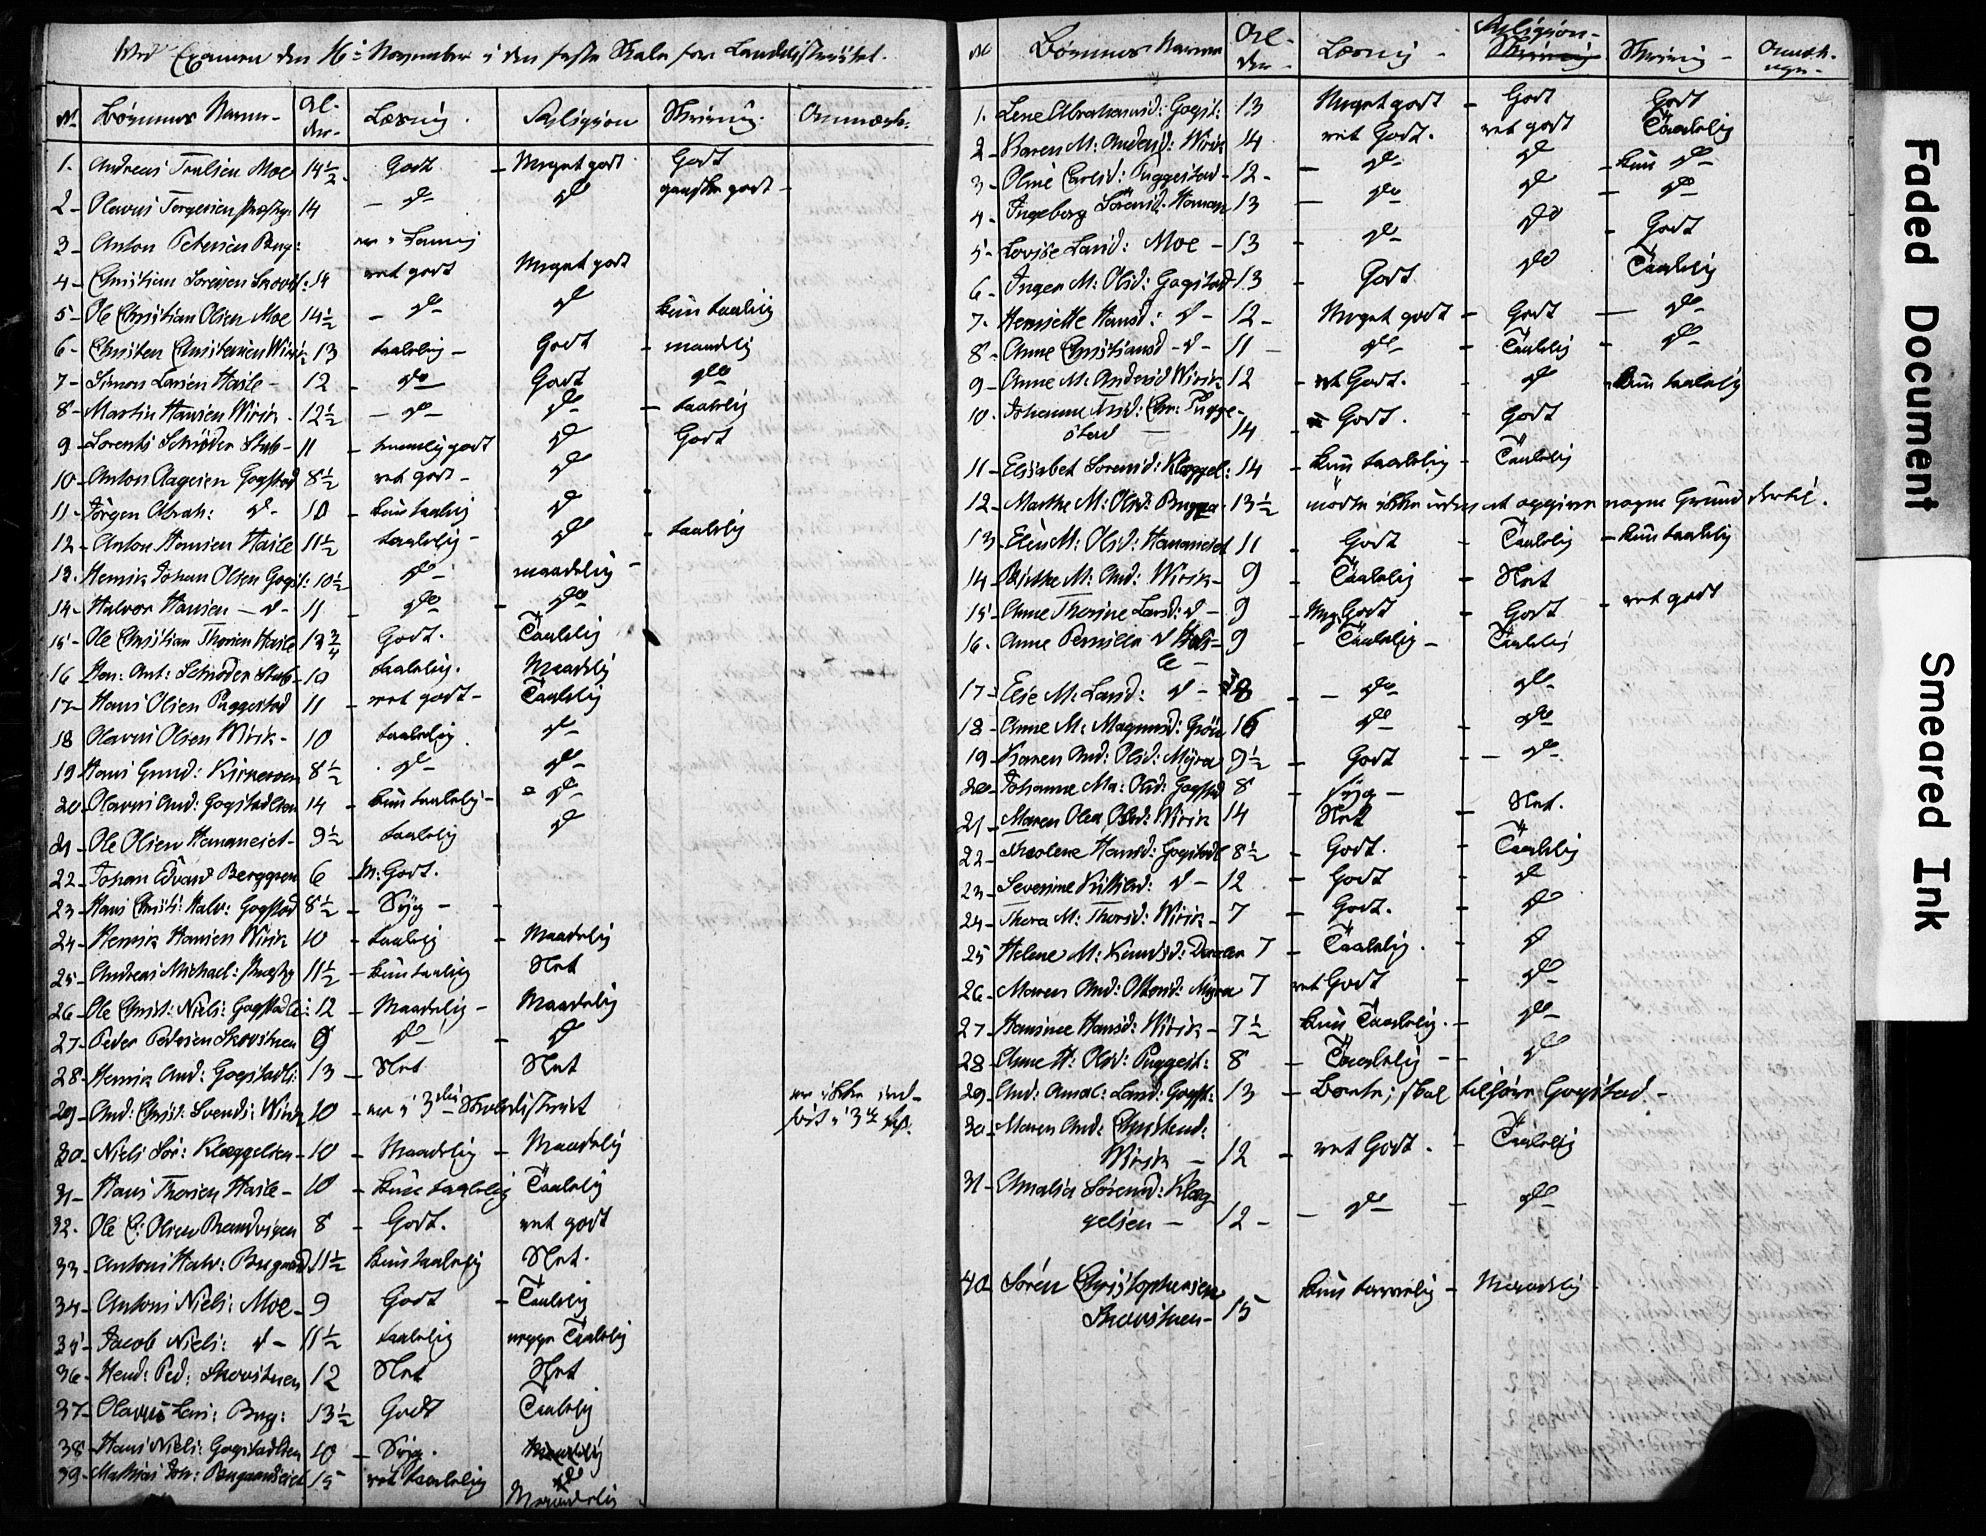 Ved Examen den 16de November i den faste Skole for Landdistrictet.
No Börnenes Navne - Al-der - Læsning. Religion Skrivning. Anmærk:
1. Andreas Trulsen Moe 14½ Godt - Meget godt Godt
2 - Olavus Torgersen 14 - do - do ganske godt -
3 - Anton Petersen Bug:
4 - Christian Sorensen 14 ret godt Meget godt
5 - Ole Christian Olsen Moe 14½ - do - do kun taalelig
6 - Christen Christensen Virik 13 taalelig - Godt - maadelig
7 - Simon Larsen Hasle - 12 - do - Godt do
8 - Martin Hansen Virik - 12½ - do - do - taalelig
9 - Lorents Schröder Stub - 11 - temmelig godt do Godt
10 - Anton Aagesen Gogstad 8½ ret godt - do
11 - Jörgen Abrah: do - 10 - kun taalelig do
12 - Anton Hansen Hasle 11½ taalelig - do - taalelig
13. Henrik Johan Olsen Gogst: 10½ do - maadelig -
14 - Halvor Hansen - do - 11 - do - do
15 - Ole Christian Thorsen Hasle 13¾ Godt. Taalelig
16 Han: Ant: Schröder Stub - 10 taalelig. Maadelig
17 - Hans Olsen Puggestad 11 - ret godt - Taalelig
18 Olavus Olsen Virik - 10 taalelig do -
19 Hans Gund: 8½ - do - do -
20 - Olavus And: Gogstadlien 14 - kun taalelig - do -
21 - Ole Olsen Hemaneiet - 9½ taalelig do
22 - Johan Edvard Berggren 6 M: Godt.
23 - Hans Christ: Halv: Gogstad 8½ - Syg -
24 - Henrik Hansen Virik 10 - taalelig - Maadelig
25 - Andreas Michael: 11½ - kun taalelig Slet
26 - Ole Christ: Niels: Gogstadli: 12 - Maadelig - Maadelig
27 - Peder Pedersen Skovstuen 9 do - do
28 - Henrik And: Gogstadli: 13 - Slet Slet
29 - And: Christ: Svends: Virik 10 - er i 3die Skoledistrict
er ikke ind-
i 3die
30 - Niels Sör: Klæggelien - 10 - Maadelig - Maadelig
31 - Hans Thorsen Hasle - 10 - kun taalelig Taalelig
32. Ole C: Olsen Brandvigen 8 - Godt. ret godt
33 - Antoni Halv: Bugaard 11½ kun taalelig Slet.
34 - Antoni Niels: Moe - 9 Godt - Taalelig
35 - Jacob Niels: do - 11½ taalelig neppe Taalelig
36 - Hend: Ped: Skovstuen 12 Slet Slet
37 - Olavus Lars: Bug: 13½ Godt Taalelig
38 - Hans Niels: Gogstadlien 10 - Syg. Maadelig
do
39 - Mathias Joh: Bugaardseiet 15 ret taalelig Maadelig
No Börnenes Navne Al-der - Læsning - Religion - Skrivning Skrivning - Anmærk-ngr -
1. Lene Abrahamsd: Gogst: 13 Meget godt - Godt Godt
2 - Karen M: Andersd: Virik 14 ret Godt. ret godt Taalelig
3 - Oline Carlsd: Puggestad - 12 - - do - do - kun do
4 - Ingeborg Sörensd: Haman 13 - do - do - do
5 - Lovise Larsd: Moe - 13 - do - do - Godt
6 - Inger M: Olsd: Gogstad 13 - Godt do Taalelig
7 - Henriette Hansd: do - 12 - Meget godt - Godt - do -
8 - Anne Christiansd - do - 11 - do - Taalelig - do
9 - Anne M: Andersd Virik 12 - ret Godt. - do - kun taalelig
10. Johanne Chr: Pugge-
stad - 14 - Godt. - Godt
11 - Elisabet Sorensd: Klæggel: 14 - kun taalelig - Taalelig
12 - Marthe M: Olsd: Bugga - 13½ mödte ikke uden at opgive nogen Grund dertil.
13 - Elen M: Olsd: Hamaneiet 11 - Godt - Taalelig - kun taalelig
14 - Birthe M: And: Virik - 9 - Taalelig - Slet
15 - Anne Thorine Larsd: do - 9 - Meg: Godt - Godt - ret godt
16 - Anne Pernille do Has-
le - 9 - Taalelig - Taalelig
17 - Else M: Larsd: do - 8 - - do - do -
18 - Anne M: Magnusd: Grön 16 do - do
19 - Karen And: Olsd: Myra 9½ - Godt - do -
20 - Johanne Ma: Olsd: Gogstad 8 - Syg -
21 - Maren Olea Olsd: Virik 14 Slet - Slet.
22 - Nicoline Hansd: Gogstad 8½ - Godt. - Taalelig
23 - Severine do - 12 - Godt - do
24 - Thora M: Thorsd: Virik - 7 - Godt. - do
25 Helene M: Knudsd: 7 - Taalelig. - do
26 - Maren And: Myra 7 ret Godt - do -
27 - Hansine Hansd: Virik - 7½ kun Taalelig. - do -
28 - Anne H: Olsd: Puggest: 8 - Taalelig - - do
29 - And: Amal: Larsd: Gogst: 13 - Borte; skal tilhöre Gogstad -
30 - Maren And: Christensd:
Virik - 12 - ret Godt. - Taalelig
31 - Amalia Sörensd: Klæg-
gelien - 12 - - do - - do
40 - Sören Christophersen
Skovstuen - 15 kun taalelig - Maadelig
Faded Document
Smeared Ink